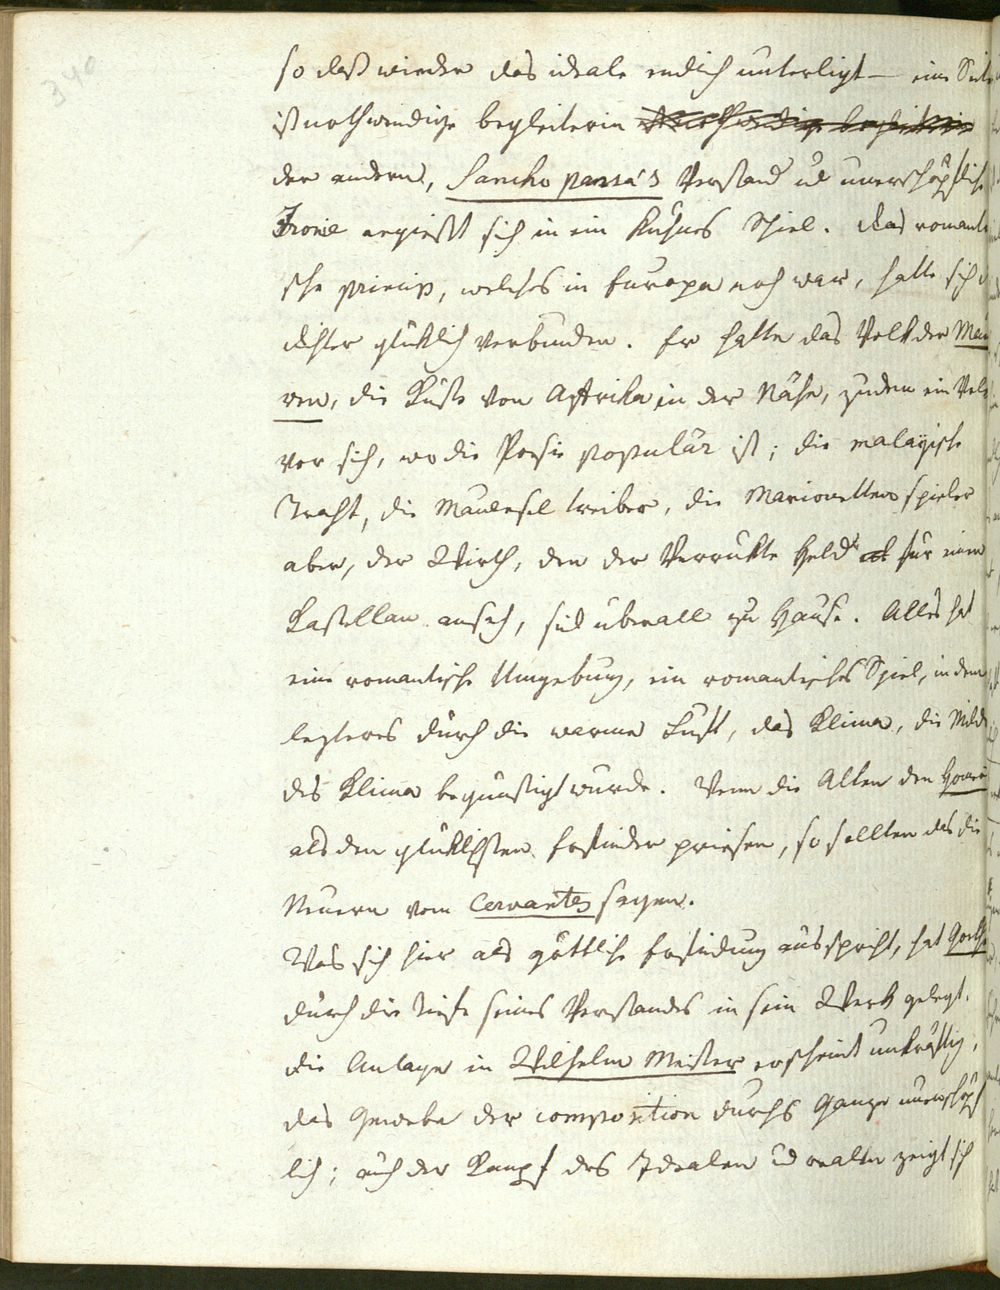 340
so daß wieder das ideale endlich unterligt — eine Seite
ist nothwendige begleiterin
der andern, Sancho pansa's Verstand ud unerschöpfliche
Ironie ergießt sich in ein kühnes Spiel. das romanti
sche princip, welches in Europa noch war, hatte sich
dichter glüklich verbunden. Er hatte das Volk der Mau
ren, die Küste von Afrika in der Nähe, zudem ein Volk
vor sich, wo die Poesie populär ist; die malayische
Tracht, die Mauleseltreiber, die Marionettenspieler
aber, der Wirth, den der Verrükte Held für einen
Kastellan ansah, sid überall zu Hause. Alles hat
eine romantische Umgebung, ein romantisches Spiel, indem
lezteres durch die warme Luft, das Klima, die Milde
des Klima begünstigt wurde. Wenn die Alten den Homer
als den glüklichsten Erfinder priesen, so sollten das die
Neuern vom Cervantes sagen.
Was sich hier als göttliche Erfindung ausspricht, hat Goethe
durch die Tiefe seines Verstandes in sein Werk gelegt.
die Anlage in Wilhelm Meister erscheint unkräftig,
das Gewebe der composition durchs Ganze unerschöpf
lich; auch der Kampf des Idealen ud realen zeigt sich